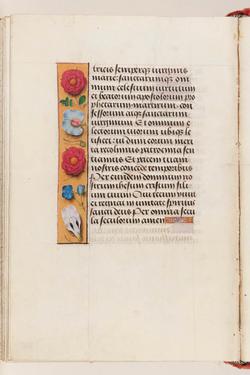 tricis semperque virginis
marie sanctarumque om
nium celestium virtutum
et beatorum apostolorum pro
phetarum martirum con
fessorum atque sanctarum
virginum Et omnium e
lectorum tuorum ubique le
tificet tui dum eorum meri
ta recolimus patrocinia sen
tiamus Et pacem tuam
nostris concede temporibus
Per eundem dominum no
strum ihesum cristum fili
um tuum Qui tecum vivit
et regnat in unitate spiritus
sancti deus Per omnia secu
la seculorum amen